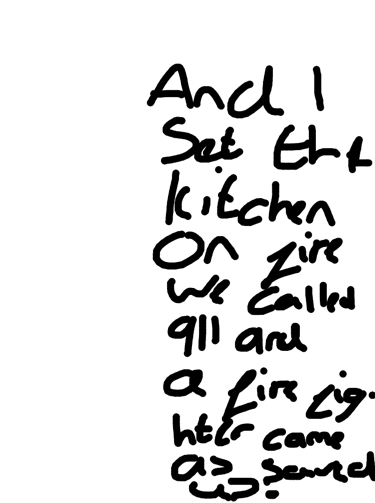 And I
Set the
kitchen
On fire
we called
911 and
a fire fig-
hter came
as saved
us.